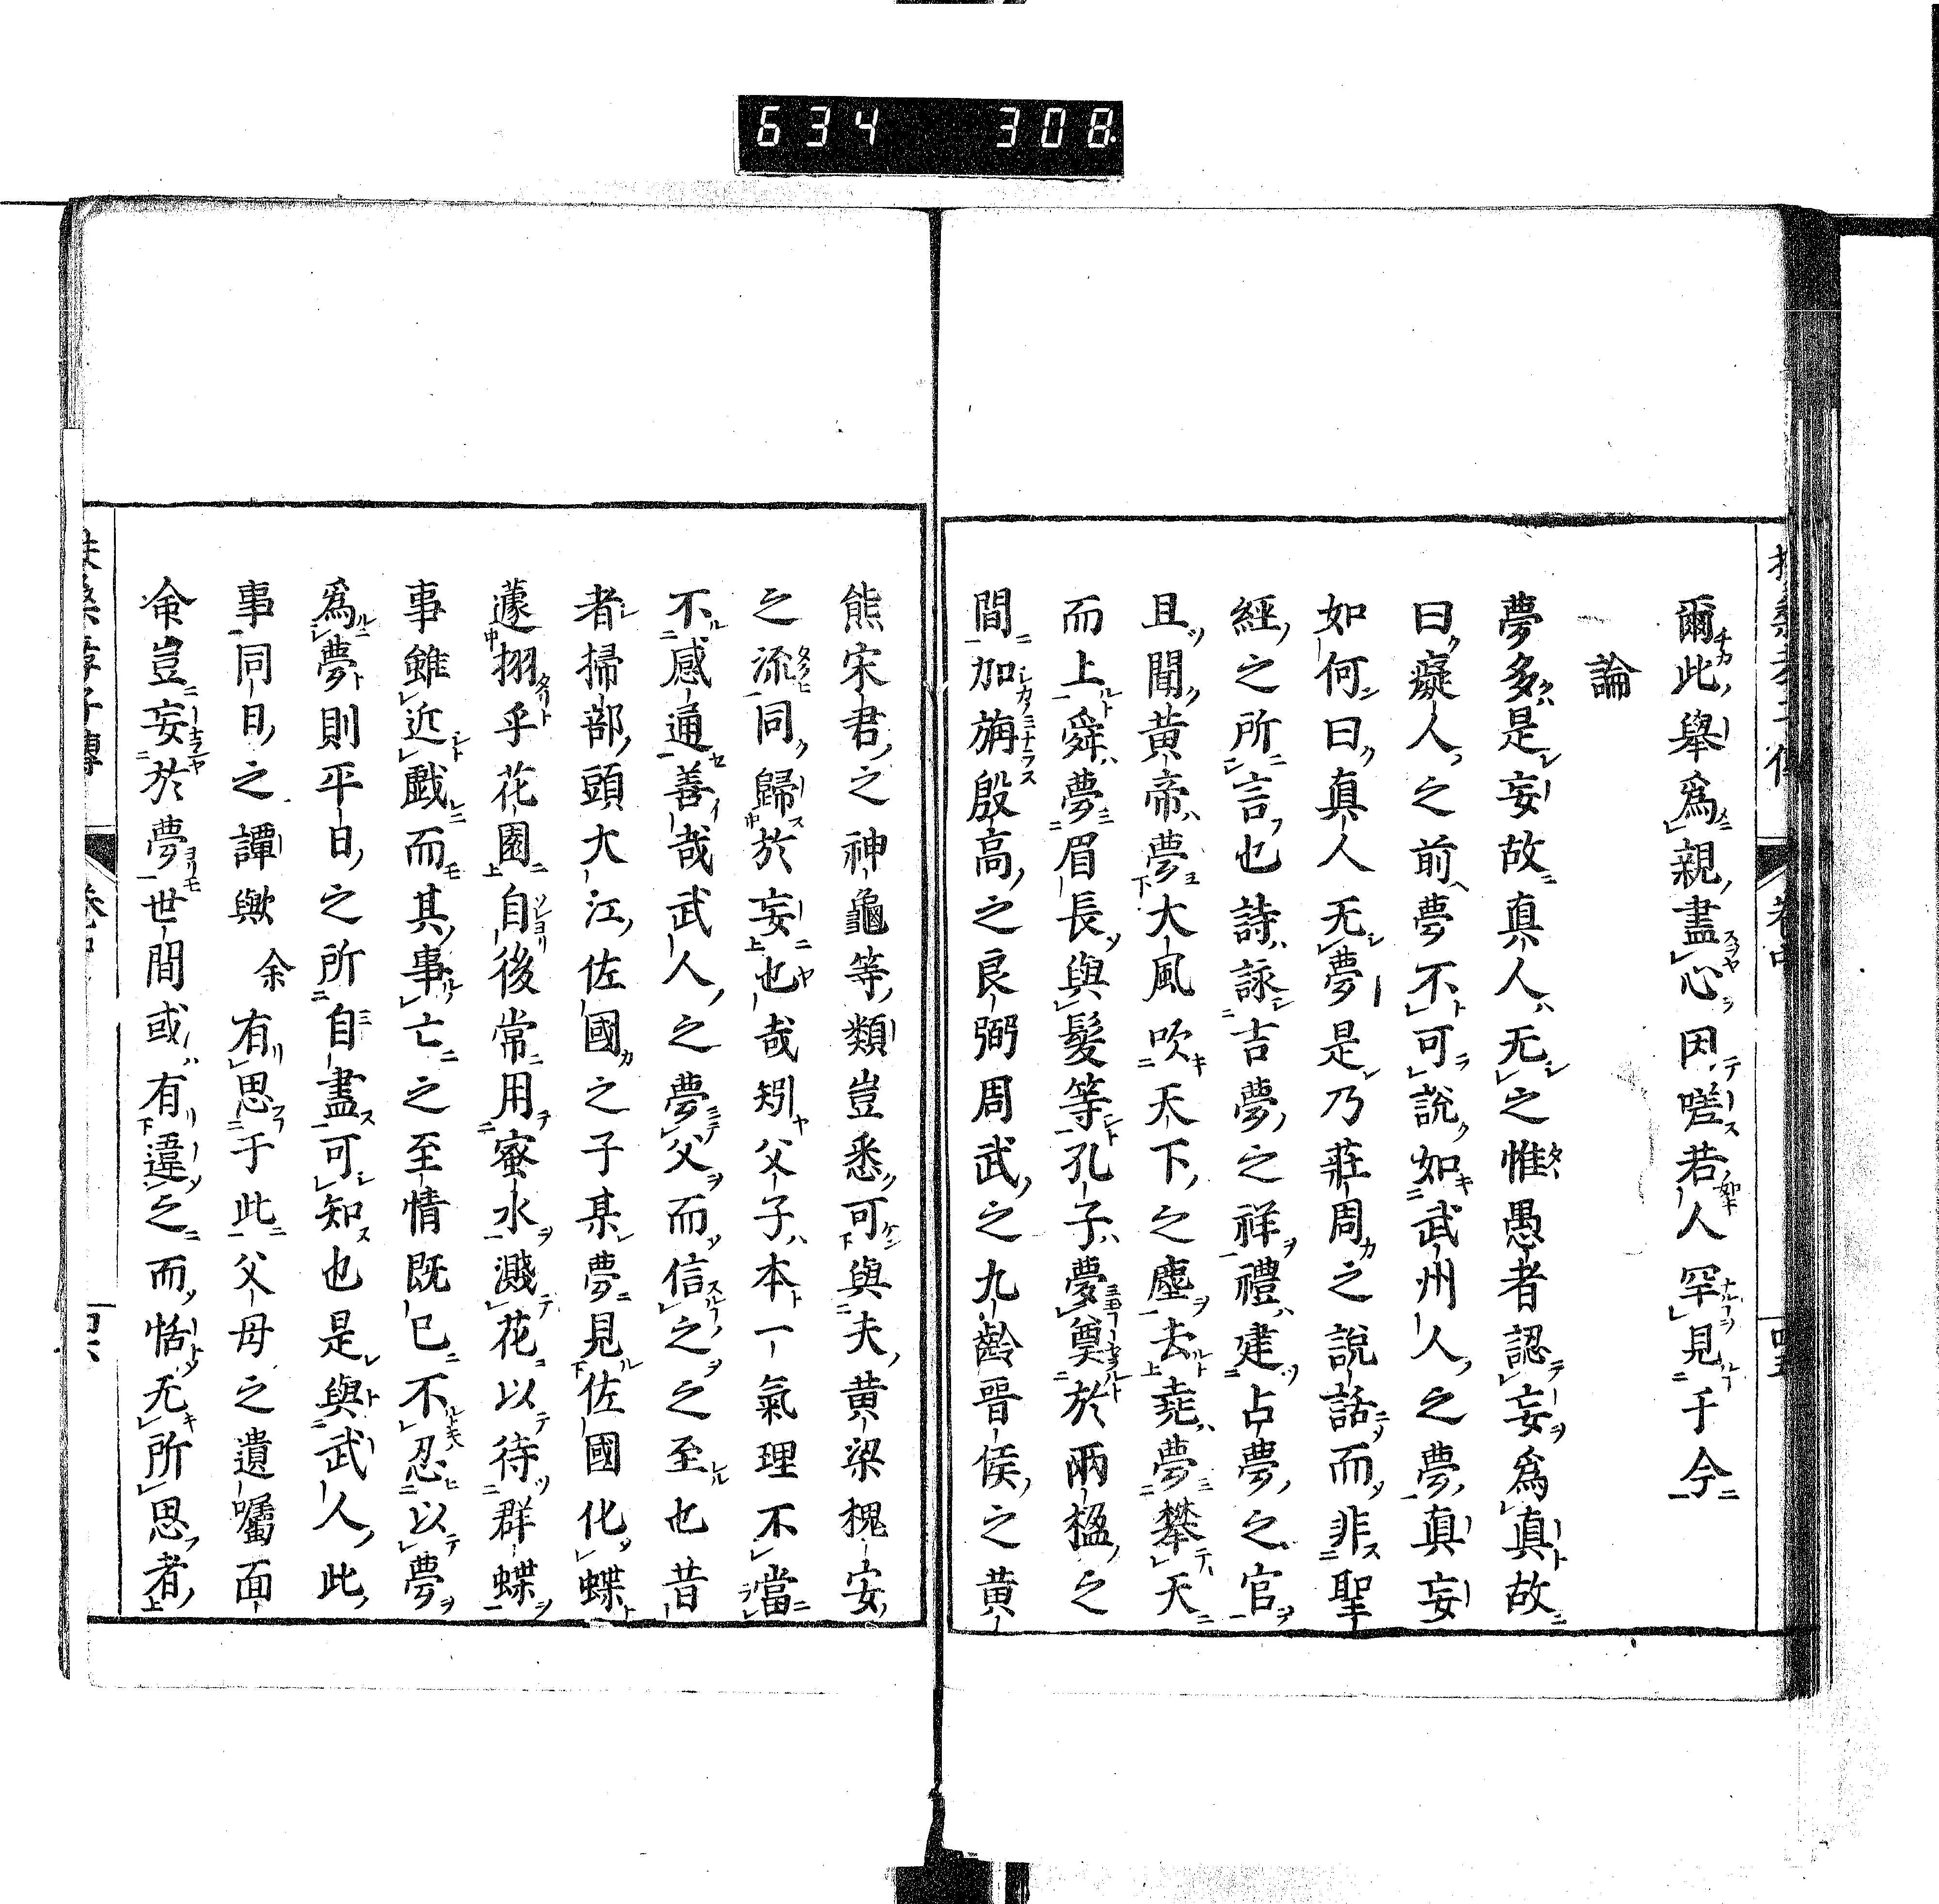 634 308
爾此擧爲親盡心因嗟若人罕見于今
論
夢多是妄故真人无之惟愚者認妄爲真故
曰癡人之前夢不可說如武州人之夢真妄
如何曰真人无夢是乃莊周之說話而非聖
經之所言也詩詠吉夢之祥禮建占夢之官
且聞黄帝夢大風吹天下之塵去堯夢攀天
而上舜夢眉長與髮等孔子夢奠於兩楹之
間加旃殷高之良弼周武之九齡晋侯之黄
熊宋君之神龜等類豈悉可與夫黄梁槐安
之流同歸於妄也哉矧父子本一氣理不當
不感通善哉武人之夢父而信之之至也昔
者掃部頭大江佐國之子某夢見佐國化蝶
蘧栩乎花園自後常用蜜水濺花以待群蝶
事雖近戲而其事亡之至情既已不忍以夢
爲夢則平日之所自盡可知也是與武人此
事同日之譚歟 余有思于此父母之遺囑面
命豈妄於夢世間或有違之而恬无所思者